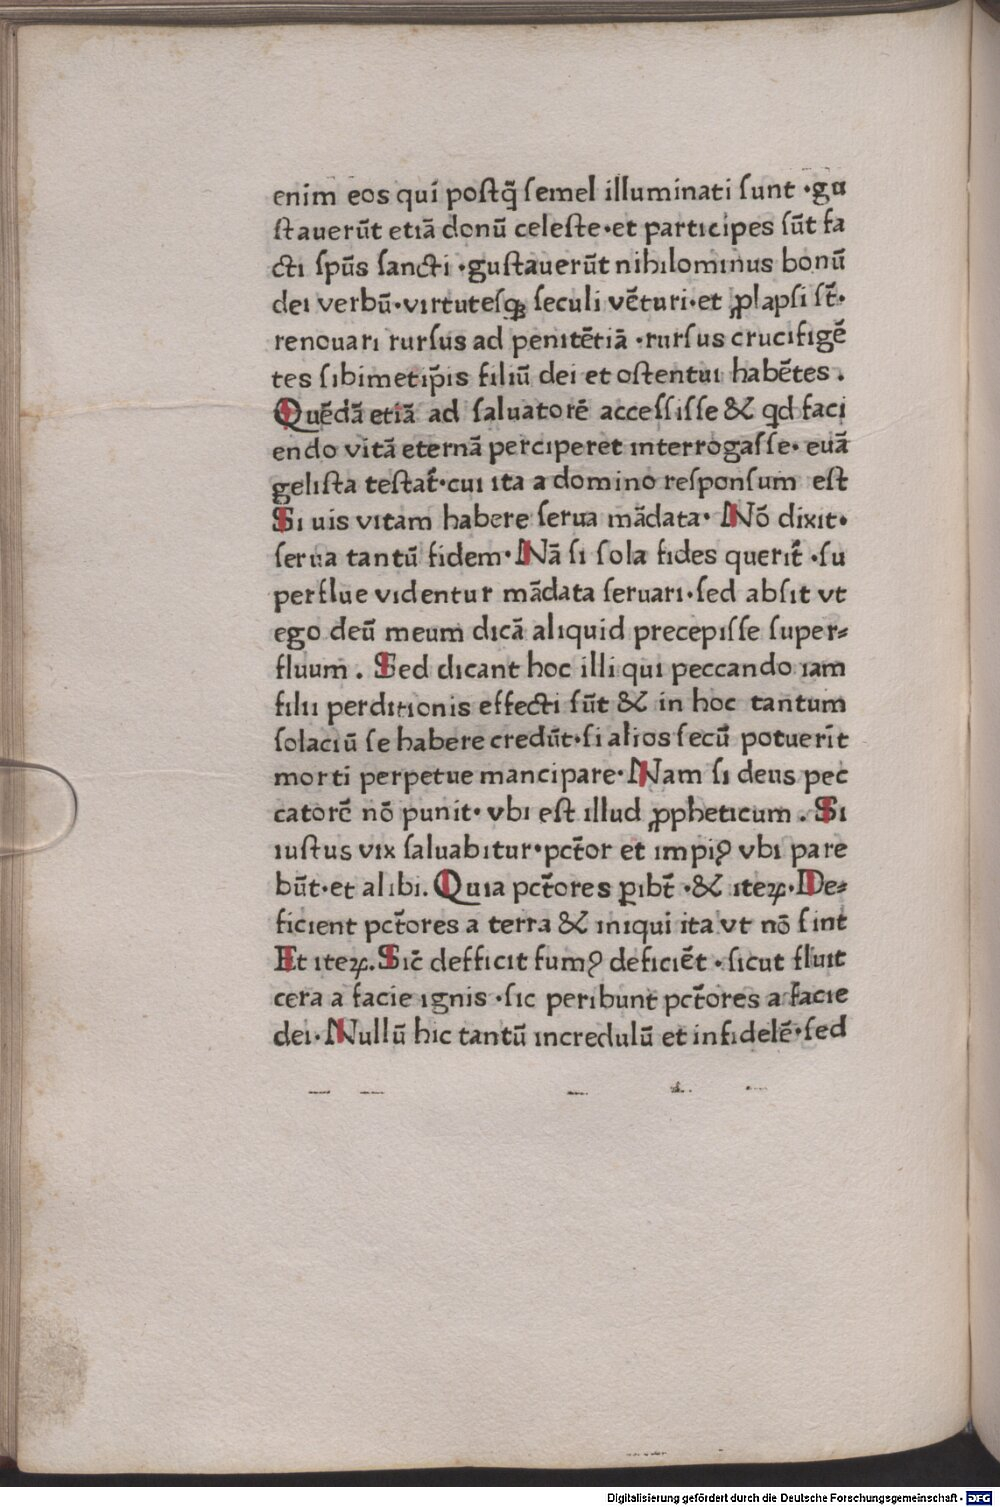 enim eos qui postq̃ semel illuminati sunt ·gu
stauerũt etiã donũ celeste·et participes sũt fa
cti spũs sancti ·gustauerũt nihilominus bonũ
dei verbũ·virtutesqꝫ seculi vẽturi·et ꝓlapsi st̃·
renouari rursus ad penitẽtiã ·rursus crucifigẽ
tes sibimetip̃is filiũ dei et ostentui habẽtes .
Quẽdã etiã ad saluatorẽ accessisse & qd faci
endo vitã eternã perciperet interrogasse· euã
gelista testat̃·cui ita a domino responsum est
Si uis vitam habere serua mãdata· Nõ dixit·
serua tantũ fidem· Nã si sola fides querit̃ ·su
perflue videntur mãdata seruari·sed absit vt
ego deũ meum dicã aliquid precepisse super⸗
fluum . Sed dicant hoc illi qui peccando iam
filii perditionis effecti sũt & in hoc tantum
solaciũ se habere credũt·si alios secũ potuerĩt
morti perpetue mancipare· Nam si deus pec
catorẽ nõ punit· vbi est illud ꝓpheticum . Si
iustus vix saluabitur·pct̃or et impiꝰ vbi pare
bũt·et alibi. Quia pct̃ores ꝑibt̃ ·& iteꝝ·De⸗
ficient pct̃ores a terra & iniqui ita vt nõ sint
Et iteꝝ. Sic̃ defficit fumꝰ deficiẽt · sicut fluit
cera a facie ignis ·sic peribunt pct̃ores a facie
dei· Nullũ hic tantũ incredulũ et infidelẽ·sed
Digitalisierung gefördert durch die Deutsche Forschungsgemeinschaft - DFG